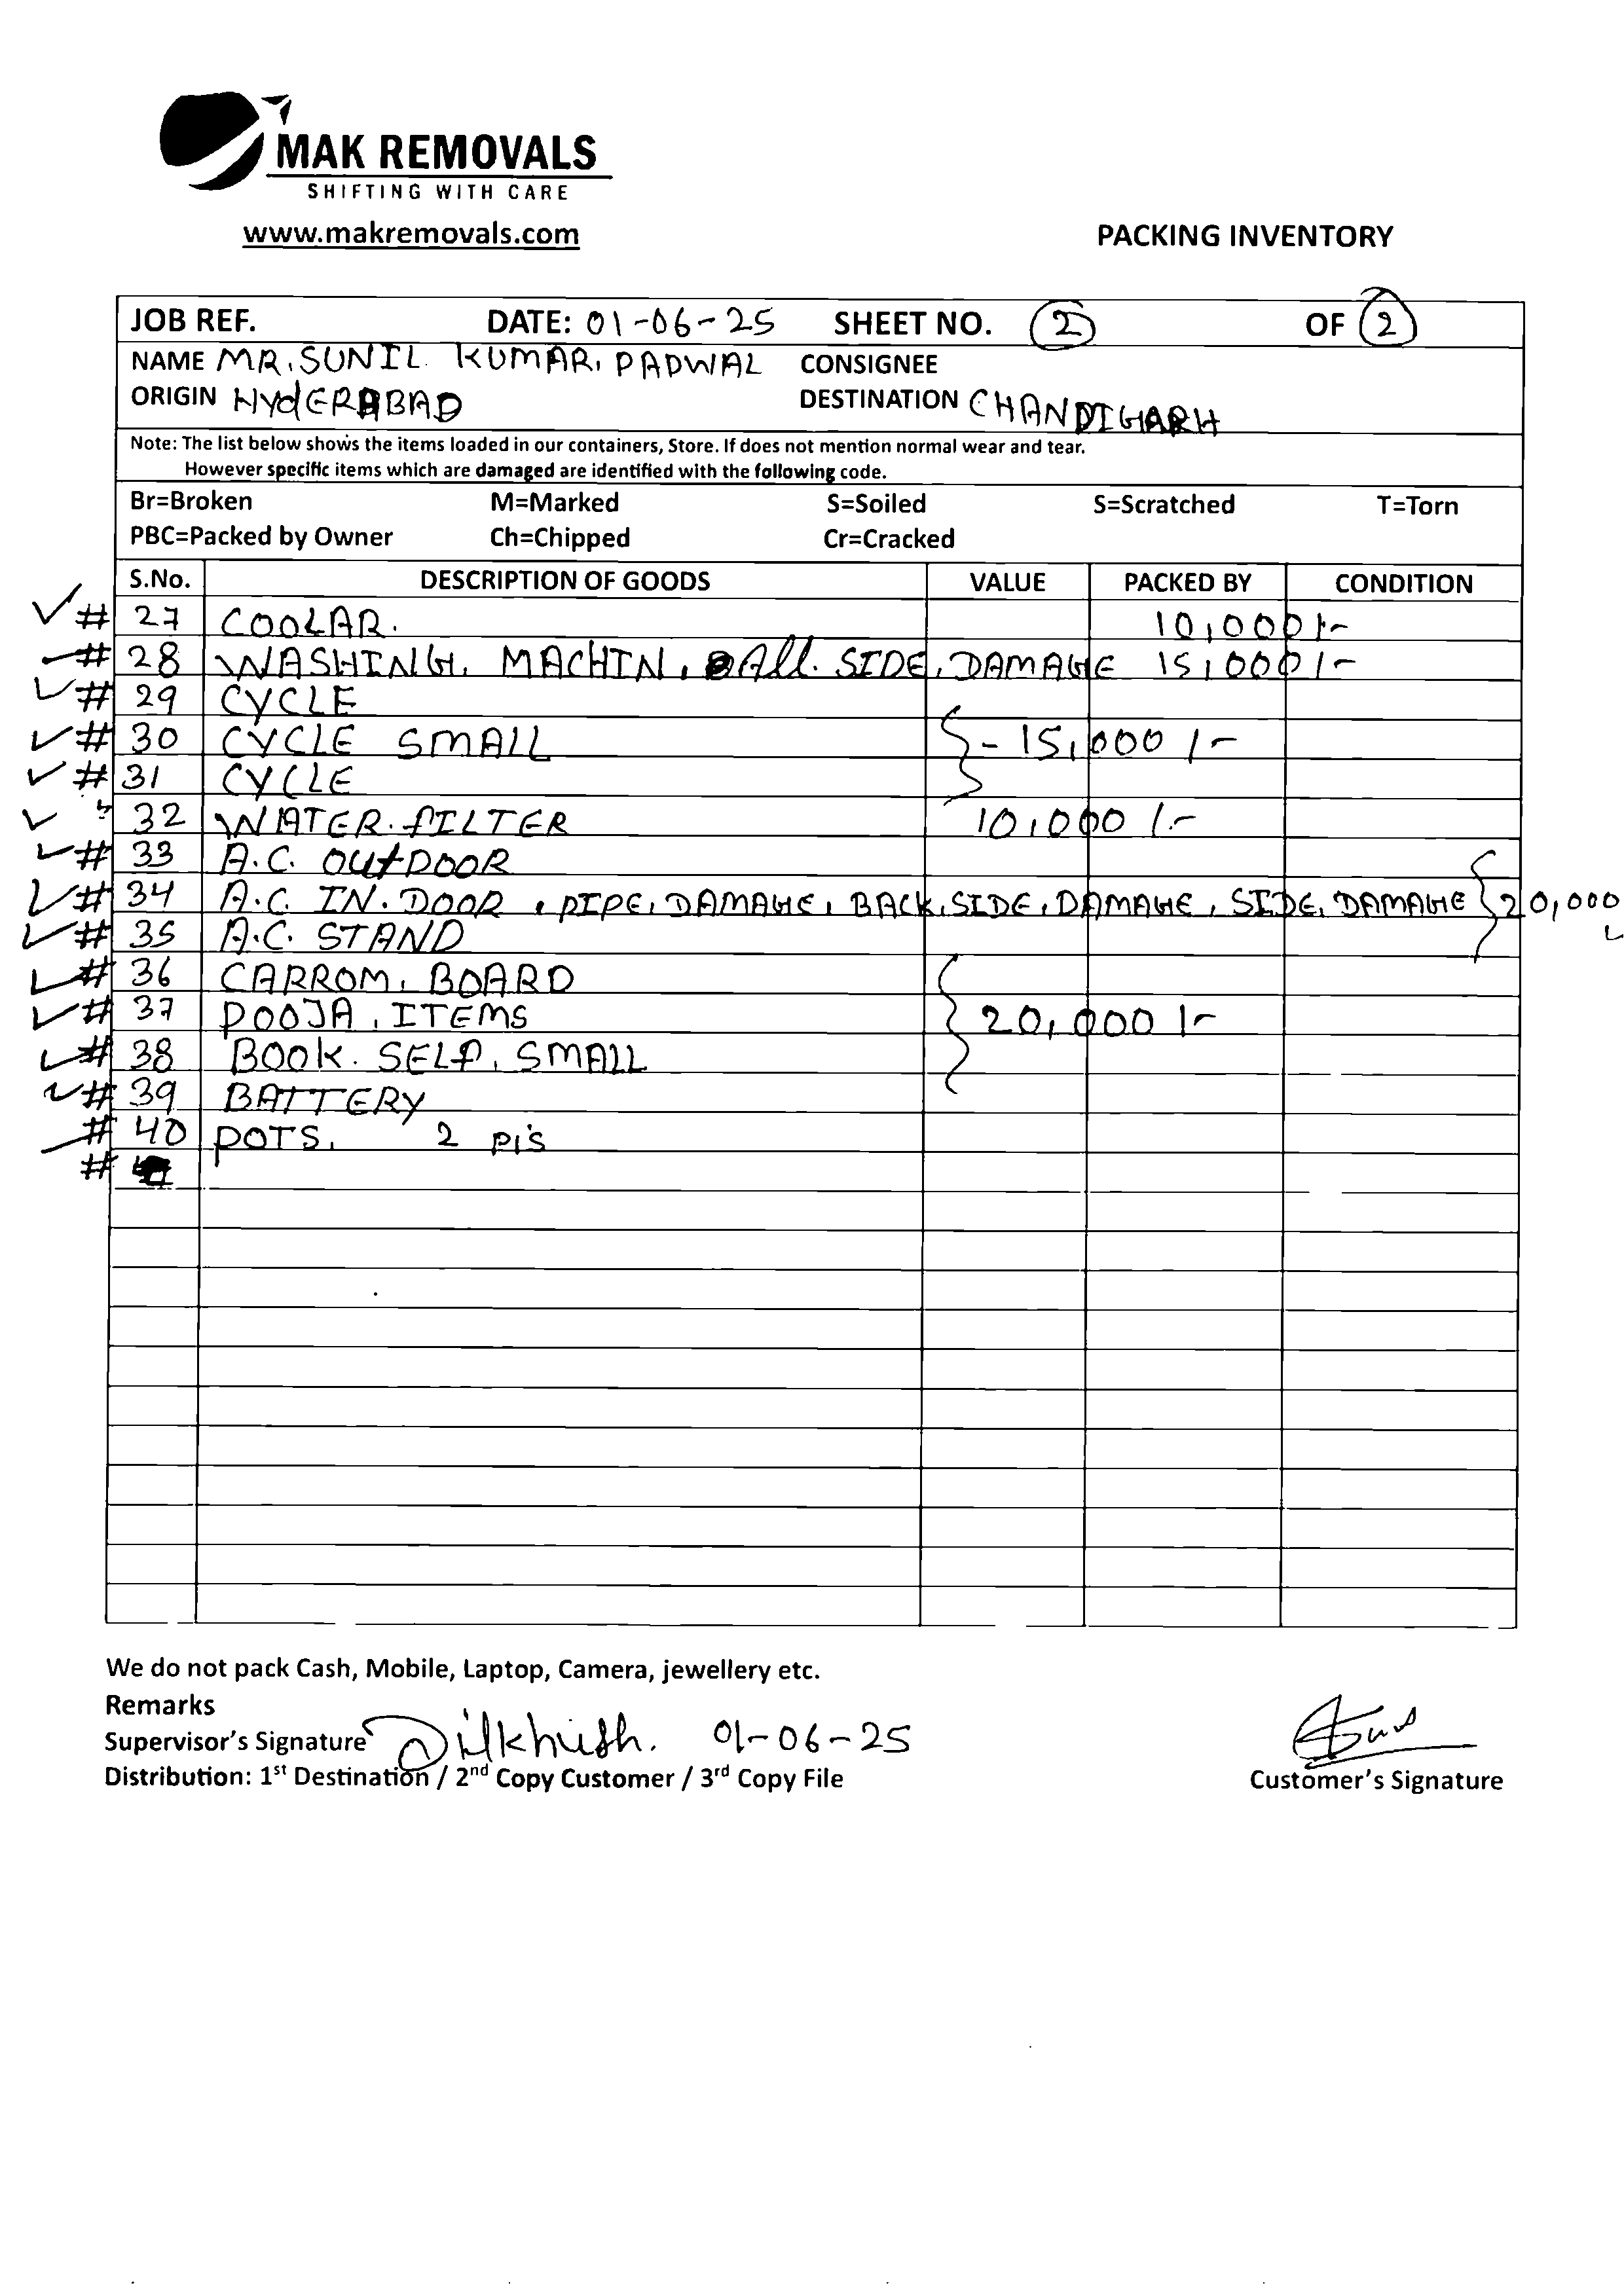 MAK REMOVALS
SHIFTING WITH CARE
www.makremovals.com
PACKING INVENTORY
JOB REF. DATE: 01-06-25 SHEET NO. 2 OF 2
NAME MR. SUNIL KUMAR. PADWAL CONSIGNEE
ORIGIN HYdERABAD DESTINATION CHANDIGARH
Note: The list below shows the items loaded in our containers, Store. If does not mention normal wear and tear.
However specific items which are damaged are identified with the following code.
Br=Broken M=Marked S=Soiled S=Scratched T=Torn
PBC=Packed by Owner Ch=Chipped Cr=Cracked
S.No. DESCRIPTION OF GOODS VALUE PACKED BY CONDITION
✓ # 27 COOLAR. 10,000/-
✓ # 28 WASHING. MACHIN, All. SIDE, DAMAGE 15,000/-
✓ # 29 CYCLE
✓ # 30 CYCLE SMALL } - 15,000/-
✓ # 31 CYCLE
✓ 32 WATER. fILTER 10,000/-
✓ # 33 A.C. OUtDOOR
✓ # 34 A.C. IN. DOOR, PIPE, DAMAGE, BACK, SIDE, DAMAGE, SIDE, DAMAGE } 20,000
✓ # 35 A.C. STAND
✓ # 36 CARROM, BOARD
✓ # 37 POOJA, ITEMS } 20,000/-
✓ # 38 BOOK. SELF, SMALL
✓ # 39 BATTERY
# 40 POTS, 2 Pis
#
We do not pack Cash, Mobile, Laptop, Camera, jewellery etc.
Remarks
Supervisor's Signature Dilkhush. 01-06-25
Distribution: 1st Destination / 2nd Copy Customer / 3rd Copy File
Customer's Signature